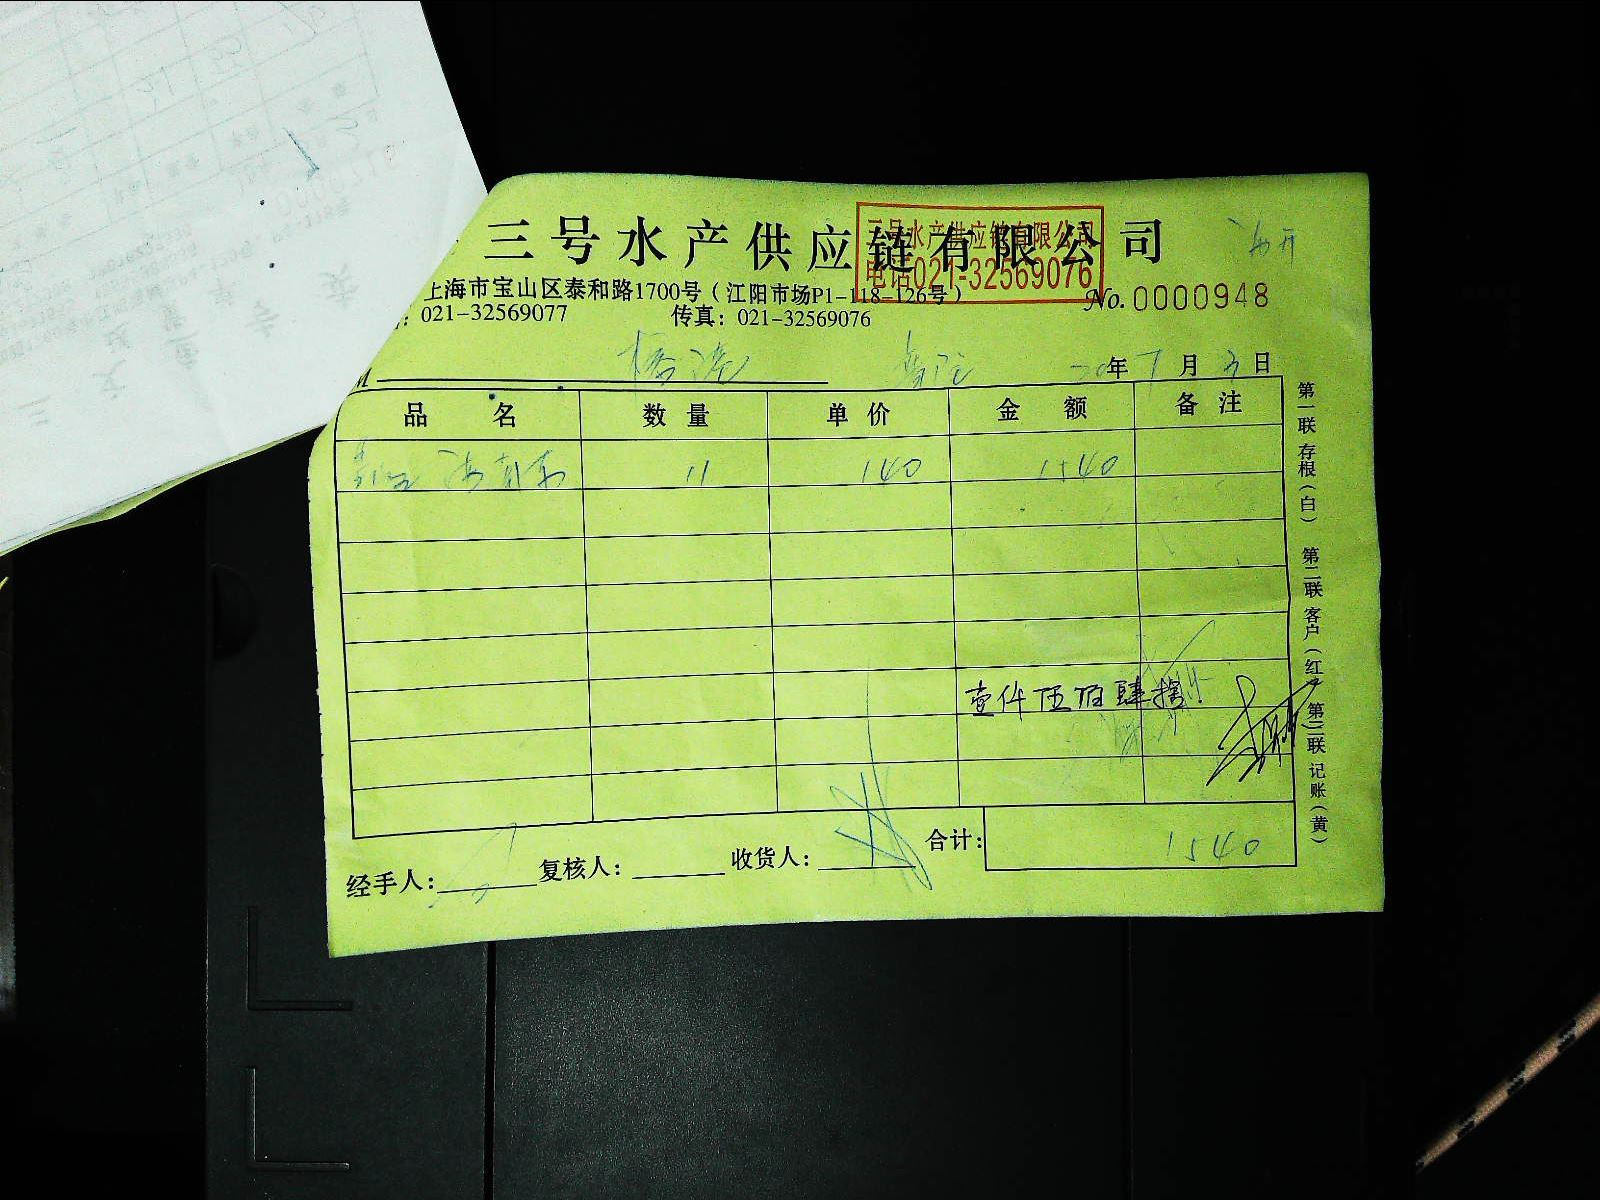 三号水产供应链有限公司
三号水产供应链有限公司
电话021-32569076
上海市宝山区泰和路1700号（江阳市场P1-118-126号）
No. 0000948
021-32569077 传真：021-32569076
20年7月3日
品名 数量 单价 金额 备注
11 140 1540
壹仟伍佰肆拾
经手人： 复核人： 收货人： 合计： 1540
第一联 存根（白） 第二联 客户（红） 第三联 记账（黄）